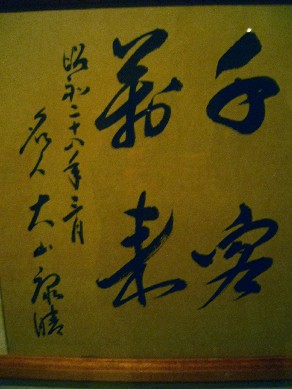 千客
萬来
昭和二十八年三月
名人 大山康晴